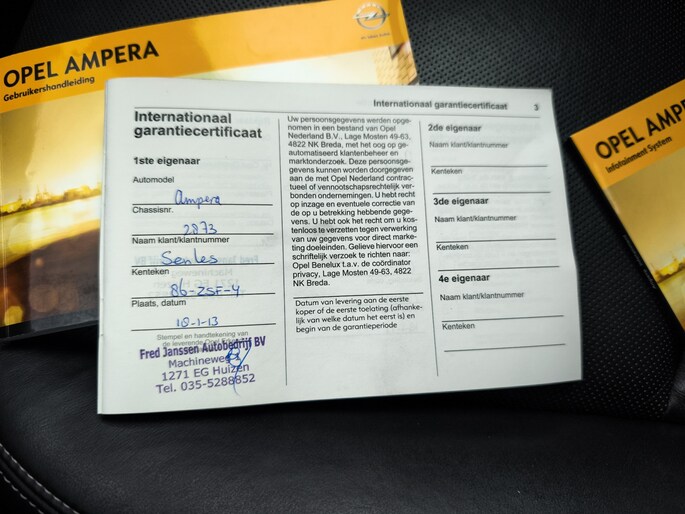 OPEL AMPERA
Gebruikershandleiding
OPEL AMPE
Infotainment System
Internationaal garantiecertificaat 3
Internationaal
garantiecertificaat
1ste eigenaar
Automodel
Ampera
Chassisnr.
2873
Naam klant/klantnummer
Kenteken
86-ZSF-4
Plaats, datum
18-1-13
Stempel en handtekening van
de leverende Opel
Fred Janssen Autobedrijf BV
Machineweg
1271 EG Huizen
Tel. 035-5288852
Uw persoonsgegevens werden opge-
nomen in een bestand van Opel
Nederland B.V., Lage Mosten 49-63,
4822 NK Breda, met het oog op ge-
automatiseerd klantenbeheer en
marktonderzoek. Deze persoonsge-
gevens kunnen worden doorgegeven
aan de met Opel Nederland contrac-
tueel of vennootschapsrechtelijk ver-
bonden ondernemingen. U hebt recht
op inzage en eventuele correctie van
de op u betrekking hebbende gege-
vens. U hebt ook het recht om u kos-
teloos te verzetten tegen verwerking
van uw gegevens voor direct marke-
ting doeleinden. Gelieve hiervoor een
schriftelijk verzoek te richten naar:
Opel Benelux t.a.v. de coördinator
privacy, Lage Mosten 49-63, 4822
NK Breda.
Datum van levering aan de eerste
koper of de eerste toelating (afhanke-
lijk van welke datum het eerst is) en
begin van de garantieperiode
2de eigenaar
Naam klant/klantnummer
Kenteken
3de eigenaar
Naam klant/klantnummer
Kenteken
4e eigenaar
Naam klant/klantnummer
Kenteken